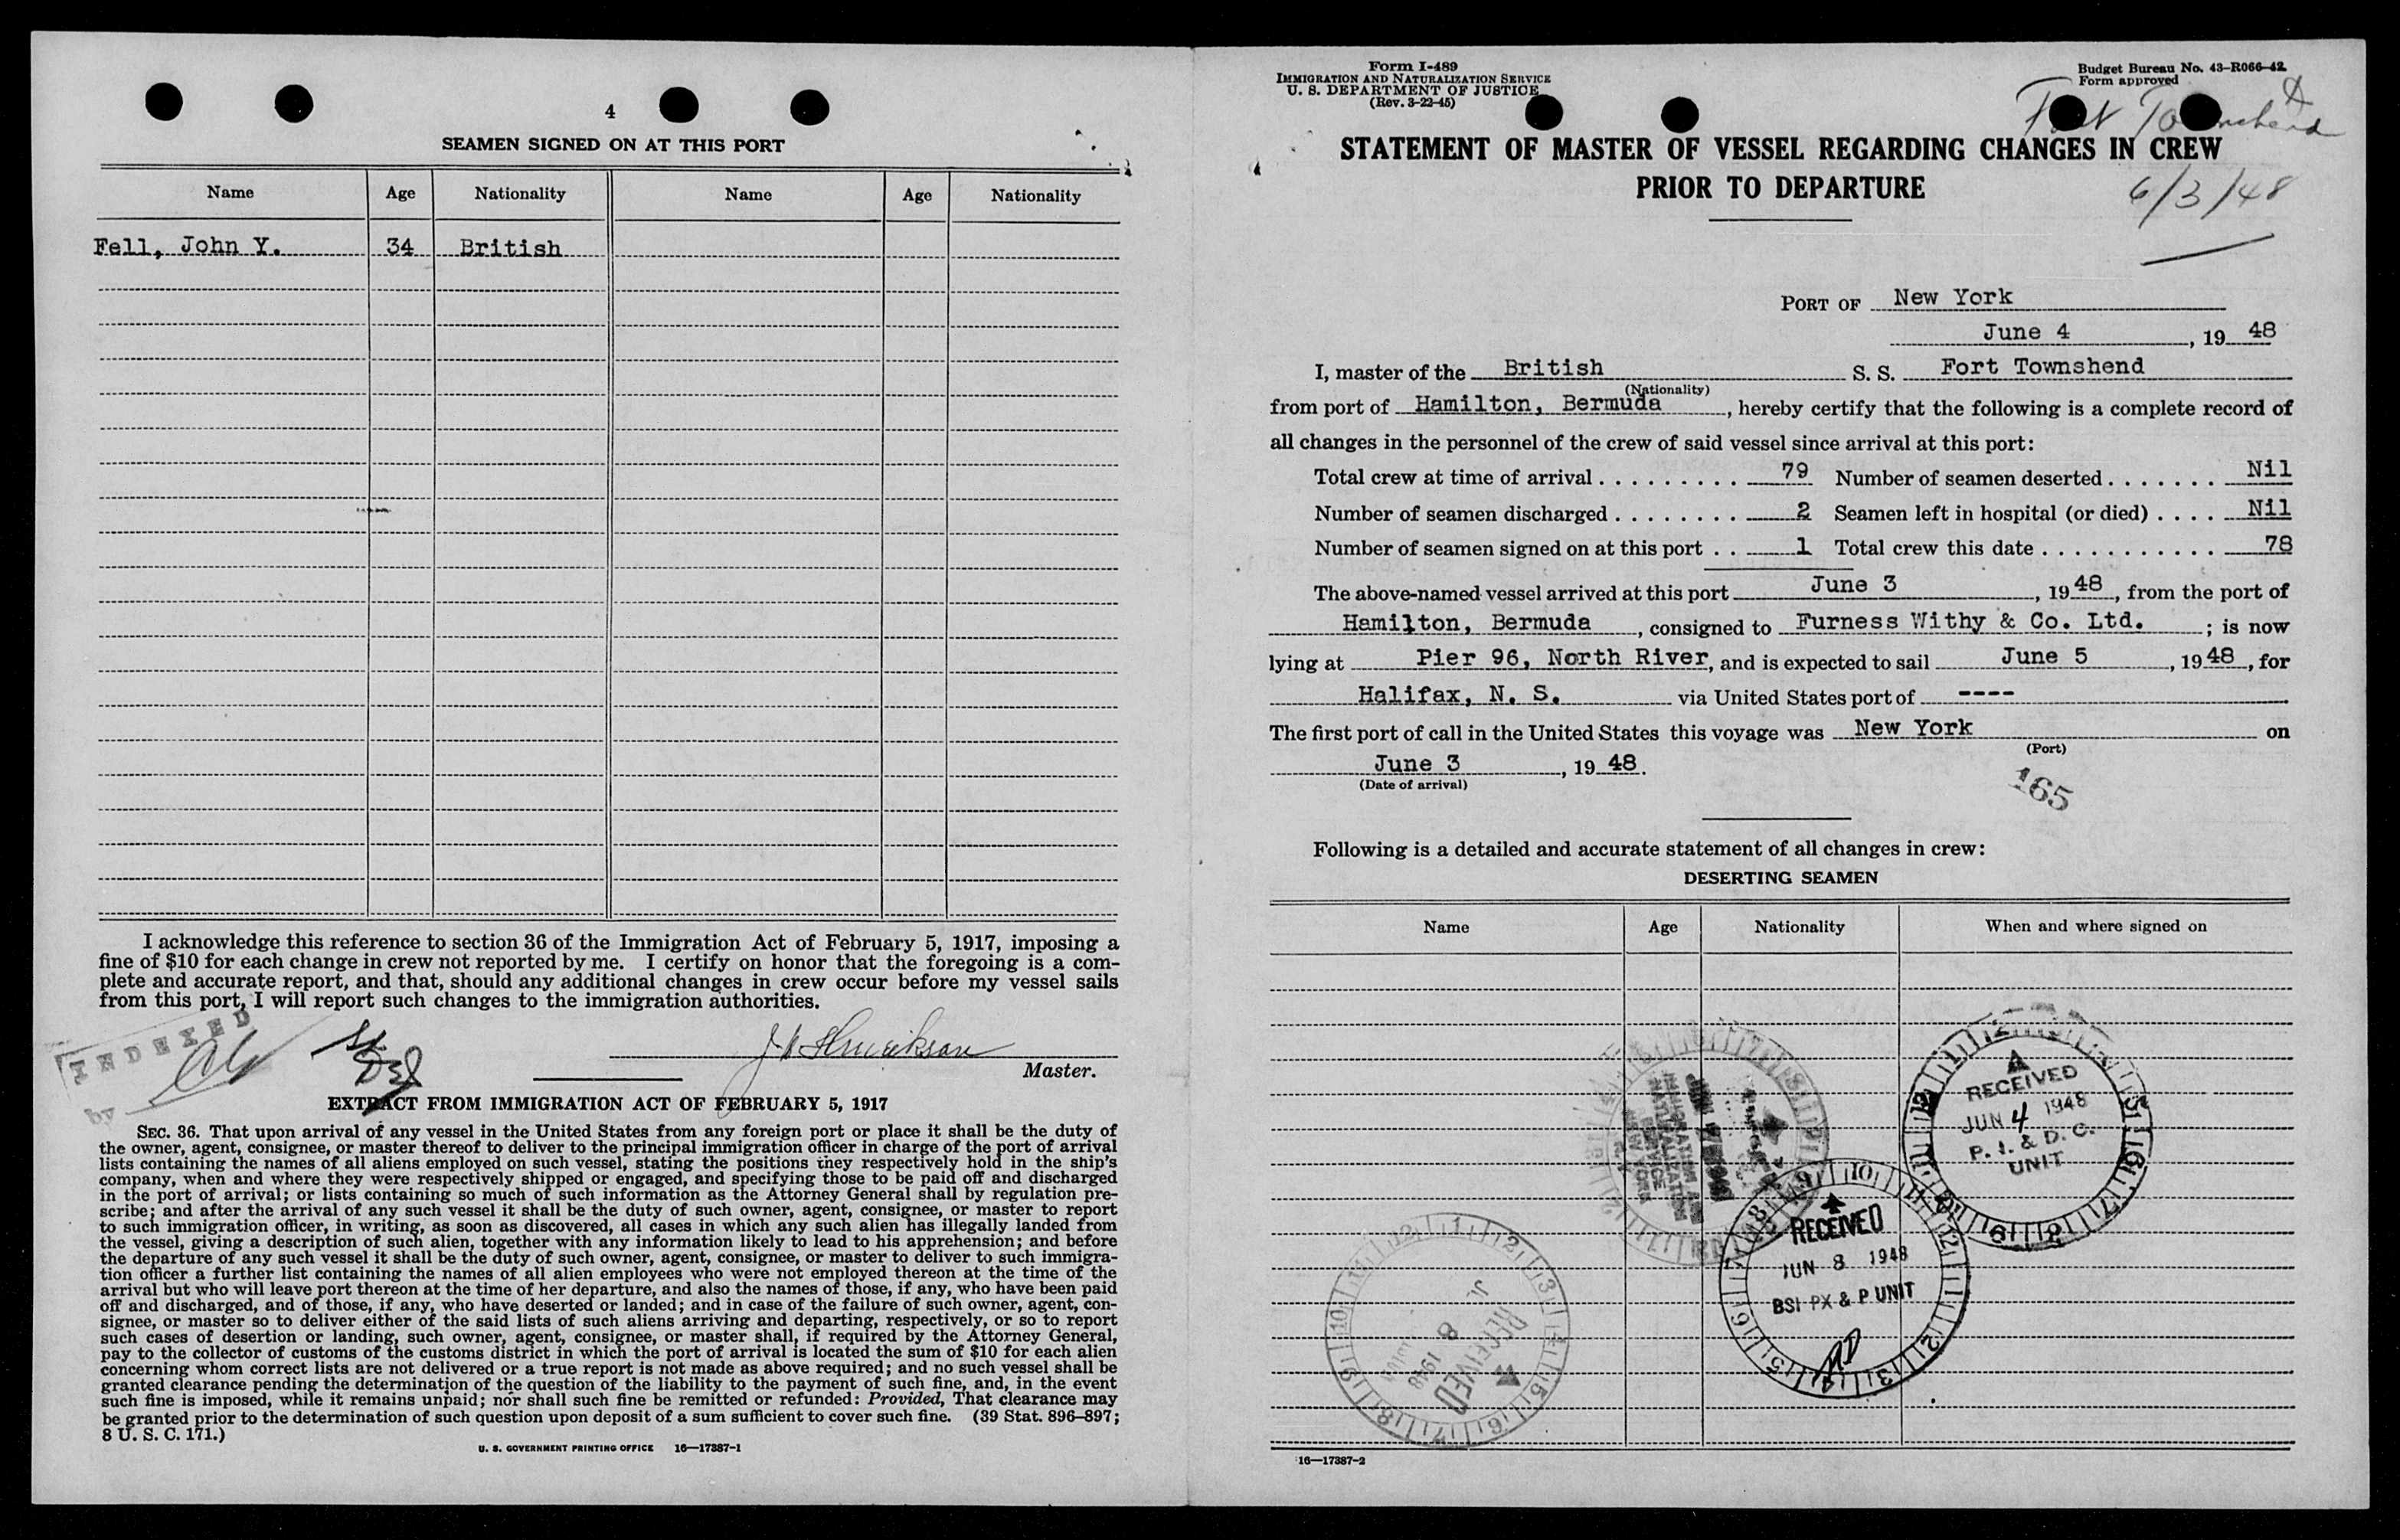 4
SEAMEN SIGNED ON AT THIS PORT
Name Age Nationality Name Age Nationality
Fell, John Y. 34 British
I acknowledge this reference to section 36 of the Immigration Act of February 5, 1917, imposing a
fine of $10 for each change in crew not reported by me. I certify on honor that the foregoing is a com-
plete and accurate report, and that, should any additional changes in crew occur before my vessel sails
from this port, I will report such changes to the immigration authorities.
INDEXED
by
Master.
EXTRACT FROM IMMIGRATION ACT OF FEBRUARY 5, 1917
SEC. 36. That upon arrival of any vessel in the United States from any foreign port or place it shall be the duty of
the owner, agent, consignee, or master thereof to deliver to the principal immigration officer in charge of the port of arrival
lists containing the names of all aliens employed on such vessel, stating the positions they respectively hold in the ship's
company, when and where they were respectively shipped or engaged, and specifying those to be paid off and discharged
in the port of arrival; or lists containing so much of such information as the Attorney General shall by regulation pre-
scribe; and after the arrival of any such vessel it shall be the duty of such owner, agent, consignee, or master to report
to such immigration officer, in writing, as soon as discovered, all cases in which any such alien has illegally landed from
the vessel, giving a description of such alien, together with any information likely to lead to his apprehension; and before
the departure of any such vessel it shall be the duty of such owner, agent, consignee, or master to deliver to such immigra-
tion officer a further list containing the names of all alien employees who were not employed thereon at the time of the
arrival but who will leave port thereon at the time of her departure, and also the names of those, if any, who have been paid
off and discharged, and of those, if any, who have deserted or landed; and in case of the failure of such owner, agent, con-
signee, or master so to deliver either of the said lists of such aliens arriving and departing, respectively, or so to report
such cases of desertion or landing, such owner, agent, consignee, or master shall, if required by the Attorney General,
pay to the collector of customs of the customs district in which the port of arrival is located the sum of $10 for each alien
concerning whom correct lists are not delivered or a true report is not made as above required; and no such vessel shall be
granted clearance pending the determination of the question of the liability to the payment of such fine, and, in the event
such fine is imposed, while it remains unpaid; nor shall such fine be remitted or refunded: Provided, That clearance may
be granted prior to the determination of such question upon deposit of a sum sufficient to cover such fine. (39 Stat. 896-897;
8 U. S. C. 171.)
U. S. GOVERNMENT PRINTING OFFICE 16—17387-1
Form I-489
IMMIGRATION AND NATURALIZATION SERVICE
U. S. DEPARTMENT OF JUSTICE
(Rev. 3-22-45)
Budget Bureau No. 43-R066-42
Form approved
Fort Townshend
STATEMENT OF MASTER OF VESSEL REGARDING CHANGES IN CREW
PRIOR TO DEPARTURE
6/3/48
PORT OF New York
June 4, 19 48
I, master of the British S. S. Fort Townshend
(Nationality)
from port of Hamilton, Bermuda, hereby certify that the following is a complete record of
all changes in the personnel of the crew of said vessel since arrival at this port:
Total crew at time of arrival 79 Number of seamen deserted Nil
Number of seamen discharged 2 Seamen left in hospital (or died) Nil
Number of seamen signed on at this port 1 Total crew this date 78
The above-named vessel arrived at this port June 3, 19 48, from the port of
Hamilton, Bermuda, consigned to Furness Withy & Co. Ltd.; is now
lying at Pier 96, North River, and is expected to sail June 5, 19 48, for
Halifax, N. S. via United States port of ----
The first port of call in the United States this voyage was New York on
(Port)
June 3, 19 48.
(Date of arrival)
165
Following is a detailed and accurate statement of all changes in crew:
DESERTING SEAMEN
Name Age Nationality When and where signed on
RECEIVED
JUN 4 1948
P. I. & D. C.
UNIT
IMMIGRATION AND
NATURALIZATION
SERVICE
NEW YORK
RECEIVED
JUN 8 1948
BSI PX & P UNIT
RECEIVED
8 1948
16—17387-2